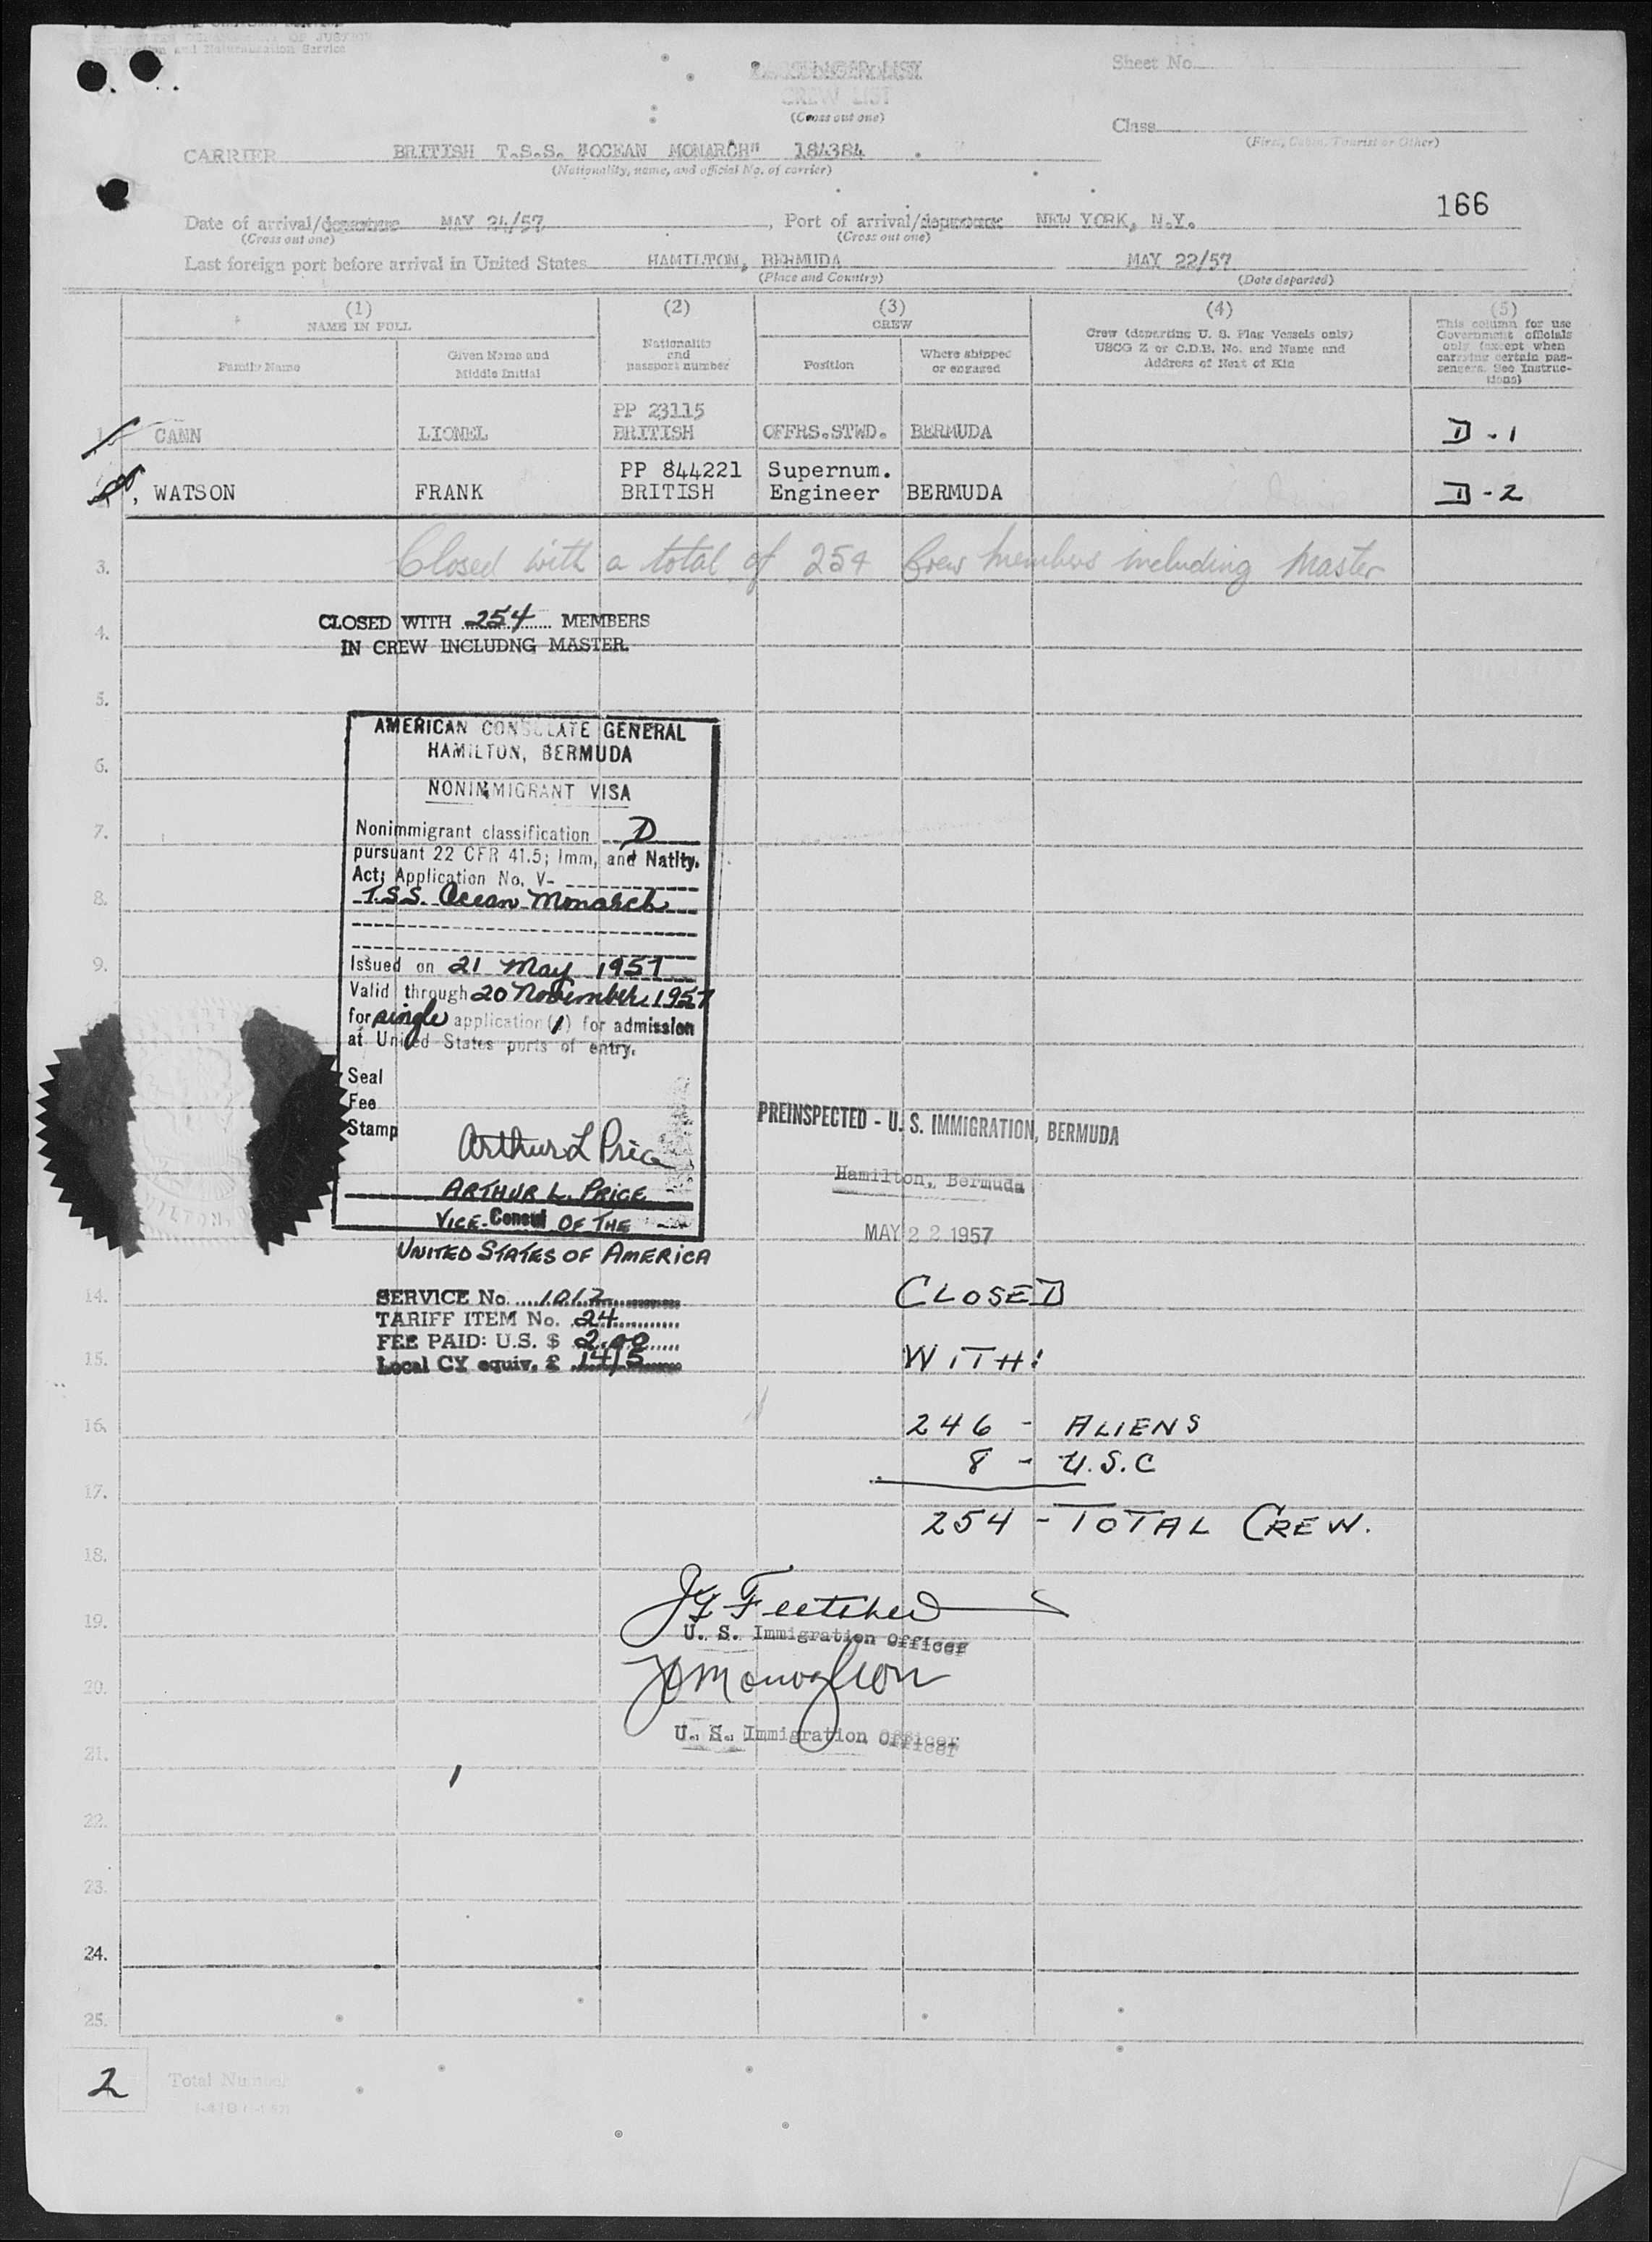 UNITED STATES DEPARTMENT OF JUSTICE
Immigration and Naturalization Service
PASSENGER LIST
CREW LIST
(Cross out one)
Sheet No.
Class
(First, Cabin, Tourist or Other)
CARRIER BRITISH T.S.S. "OCEAN MONARCH" 184384
(Nationality, name, and official No. of carrier)
166
Date of arrival/departure MAY 24/57, Port of arrival/departure NEW YORK, N.Y.
(Cross out one) (Cross out one)
Last foreign port before arrival in United States HAMILTON, BERMUDA MAY 22/57
(Place and Country) (Date departed)
(1) (2) (3) (4) (5)
NAME IN FULL
Family Name
Given Name and
Middle Initial
Nationality
and
passport number
CREW
Position
Where shipped
or engaged
Crew (departing U. S. Flag Vessels only)
USCG Z or C.D.B. No. and Name and
Address of Next of Kin
This column for use
Government officials
only (except when
carrying certain pas-
sengers. See Instruc-
tions)
PP 23115
1. CANN LIONEL BRITISH OFFRS.STWD. BERMUDA D-1
PP 844221 Supernum.
WATSON FRANK BRITISH Engineer BERMUDA D-2
3. Closed with a total of 254 Crew members including Master
CLOSED WITH 254 MEMBERS
4.
IN CREW INCLUDNG MASTER.
5.
AMERICAN CONSULATE GENERAL
HAMILTON, BERMUDA
6.
NONIMMIGRANT VISA
7.
Nonimmigrant classification D
pursuant 22 CFR 41.5; Imm, and Natlty.
Act; Application No. V-
8.
T.S.S. Ocean Monarch
9.
Issued on 21 May 1957
Valid through 20 November 1957
for single application( ) for admission
at United States ports of entry.
Seal
Fee
Stamp
Arthur L Price
ARTHUR L. PRICE
VICE-Consul OF THE
UNITED STATES OF AMERICA
PREINSPECTED - U. S. IMMIGRATION, BERMUDA
Hamilton, Bermuda
MAY 22 1957
14.
SERVICE No. 1017
TARIFF ITEM No. 24
FEE PAID: U.S. $ 2.00
Local CY equiv. £ 14/5
15.
CLOSED
WITH:
16.
246 - ALIENS
8 - U.S.C
17.
254 - TOTAL CREW.
18.
Fletcher
19.
U. S. Immigration Officer
20.
U. S. Immigration Officer
21.
22.
23.
24.
25.
2 Total Number